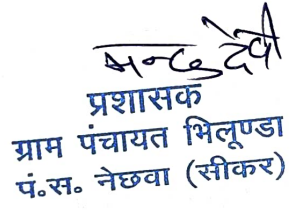 मन्जु देवी
प्रशासक
ग्राम पंचायत भिलूण्डा
पं.स. नेछवा (सीकर)